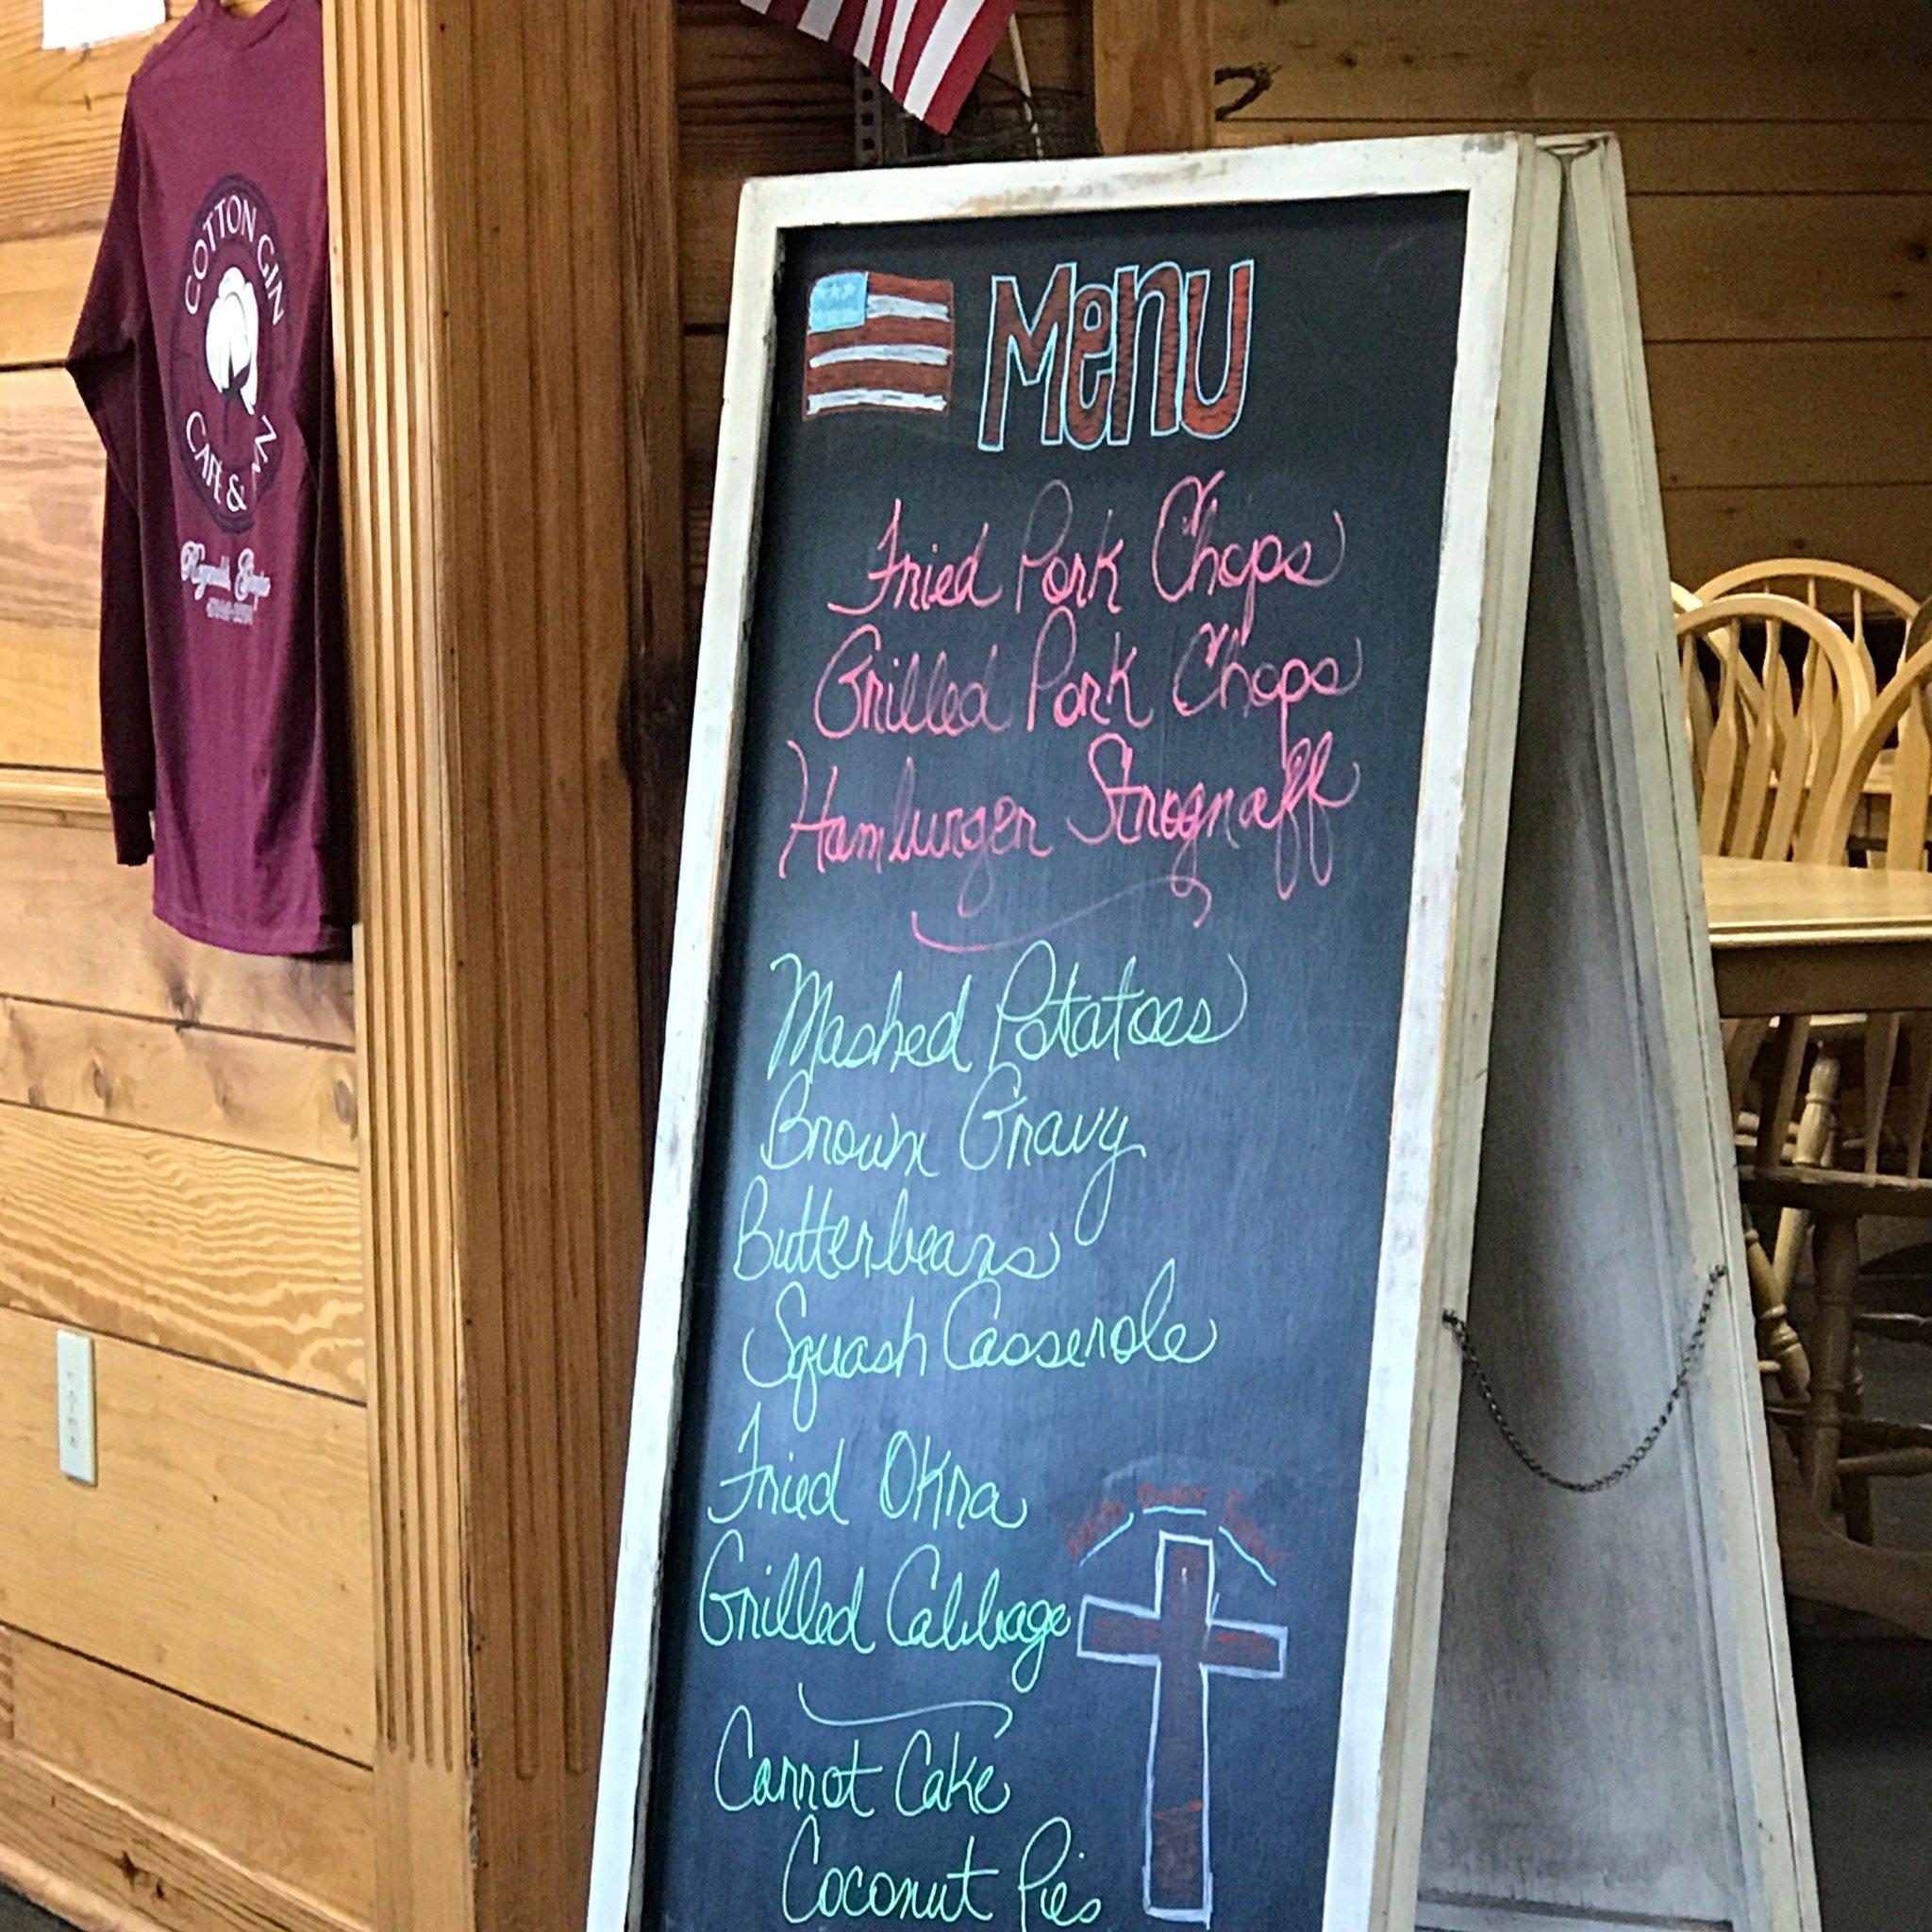 COTTON GIN
CAFE & INN
Menu
Fried Pork Chops
Grilled Pork Chops
Hamburger Strognaff
Mashed Potatoes
Brown Gravy
Butterbeans
Squash Casserole
Fried Okra
Grilled Cabbage
over
Carrot Cake
Coconut Pies